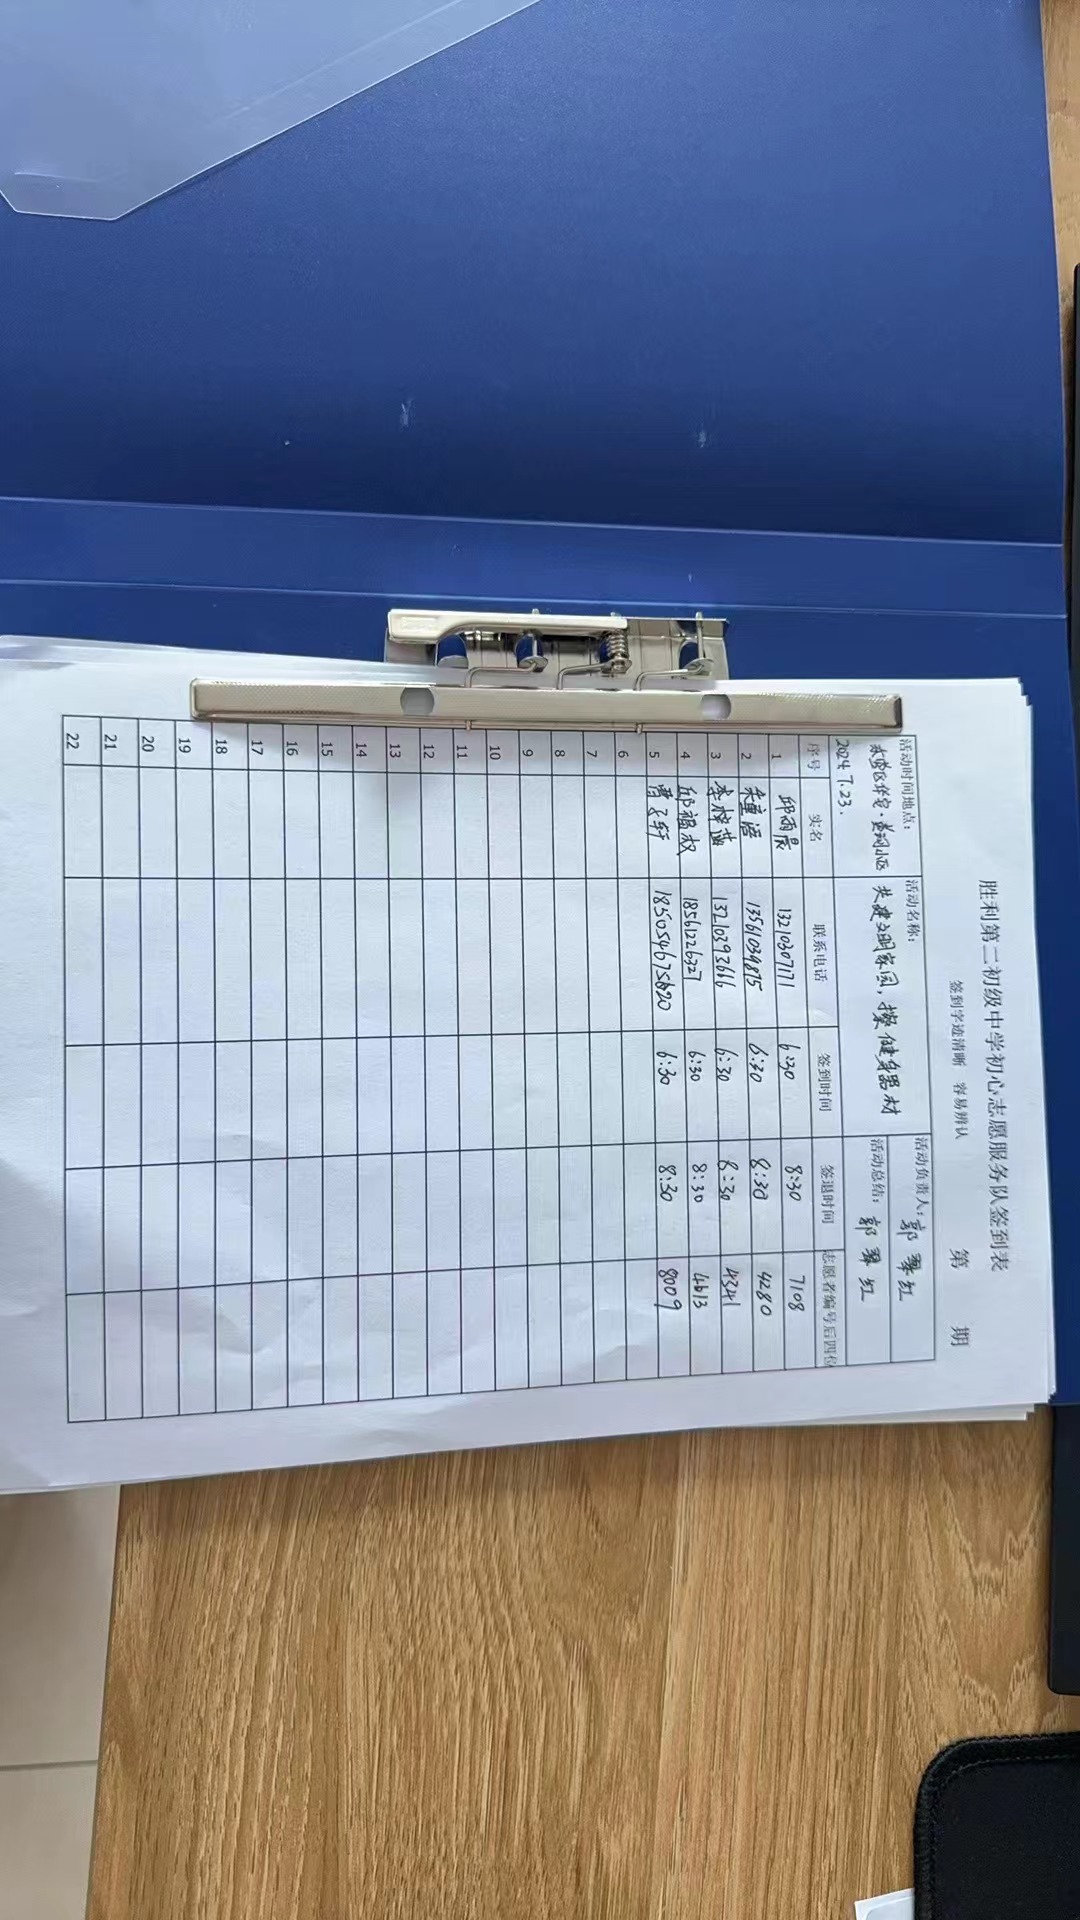 胜利第二初级中学初心志愿服务队签到表
签到字迹清晰 容易辨认 第 期
活动时间地点: 活动名称: 活动负责人: 郭翠红
东营区华宛·黄河小区 共建文明家园,擦健身器材 活动总结: 郭翠红
2024.7.23.
序号 实名 联系电话 签到时间 签退时间 志愿者编号后四位
1 邱雨晨 13210307171 6:30 8:30 7108
2 13561039875 6:30 8:30 4280
3 李梓菡 13210393666 6:30 8:30 4341
4 邱福权 18561226327 6:30 8:30 4613
5 曹子轩 6:30 8:30 8009
6
7
8
9
10
11
12
13
14
15
16
17
18
19
20
21
22